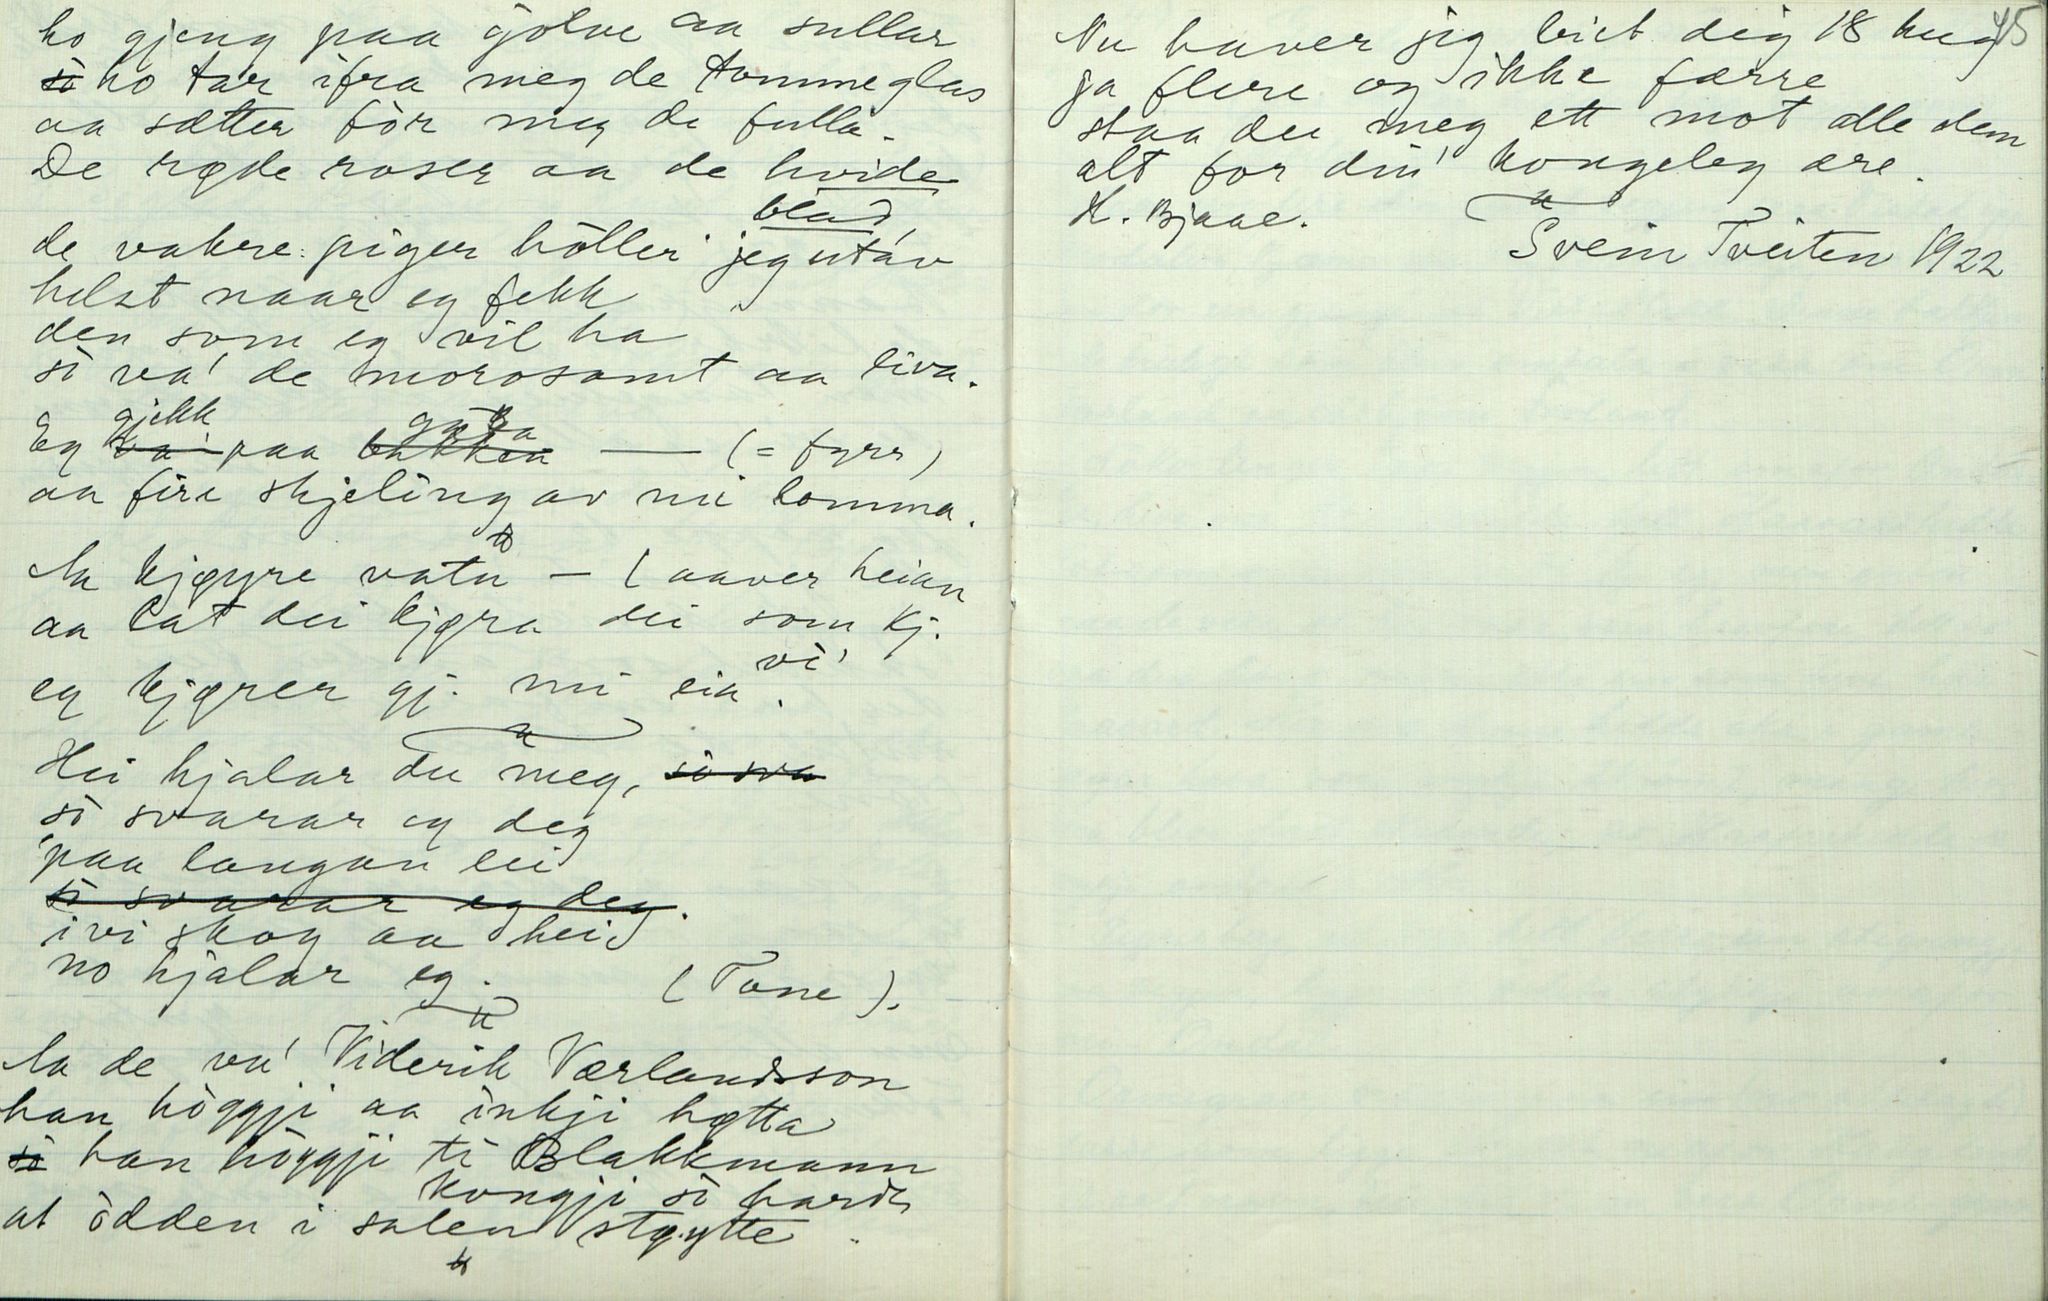 ho gjeng paa golve aa sullar
si ho tar ifra meg de tomme glas
aa sætter för meg de fulla.
De røde roser aa de hvide
blad
de vakre piger höller jeg utáv
helst naar eg fekk
den som eg vil ha
si va' de morosamt aa liva.
gjekk gata
Eg va' paa bakken — (= fyrr)
aa fire skjeling av mi lomma.
Aa kjøyre vatn — (aaver heian
aa lat dei kjøra dei som kj.
vi'
eg kjører gj. mi eia.
Hei hjalar du meg, so sva
so svarar eg deg
paa langan lei
so svarar eg deg.
ivi skog aa hei
no hjalar eg. (Tone).
Aa de va' Viderik Værlandsson
han höggji aa inkji høtta
so han höggji ti Blakkmann
kongji so hardt
at ödden i salen støytte.
45
Nu haver jeg biet dig 18 hug
ja flere og ikke færre
staa du meg ett mot alle dem
alt for din kongeleg ære.
H. Bjaae.
Svein Tveiten 1922